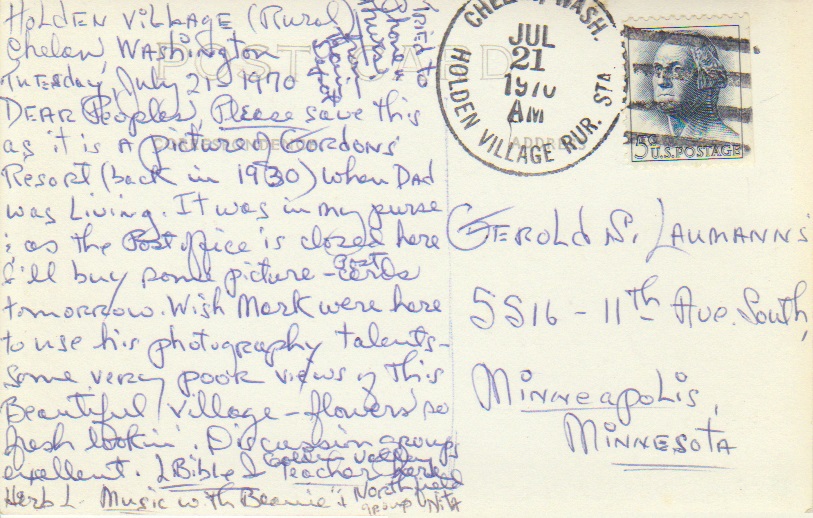 Holden Village (Rural)
Chelan, Washington
Tuesday, July 21st 1970
Dear Peoples, Please save this
as it is a picture of Gordons'
Resort (back in 1930) when Dad
was Living. It was in my purse
& as the Post office is closed here
I'll buy some picture - Post cards
tomorrow. Wish Mark were here
to use his photography talents -
some very poor views of this
Beautiful Village - flowers so
fresh lookin'. Discussion groups
excellent. 1 Bible & Golden Valley Teacher here
Herb L. Music with Beanie & Northfield
group
Tried to
POST CARD
CORRESPONDENCE
ADDRESS
CHELAN, WASH.
JUL
21
1970
AM
HOLDEN VILLAGE RUR. STA.
5¢ U.S. POSTAGE
Gerold S. Laumanns'
5516 - 11th Ave. South,
Minneapolis,
Minnesota